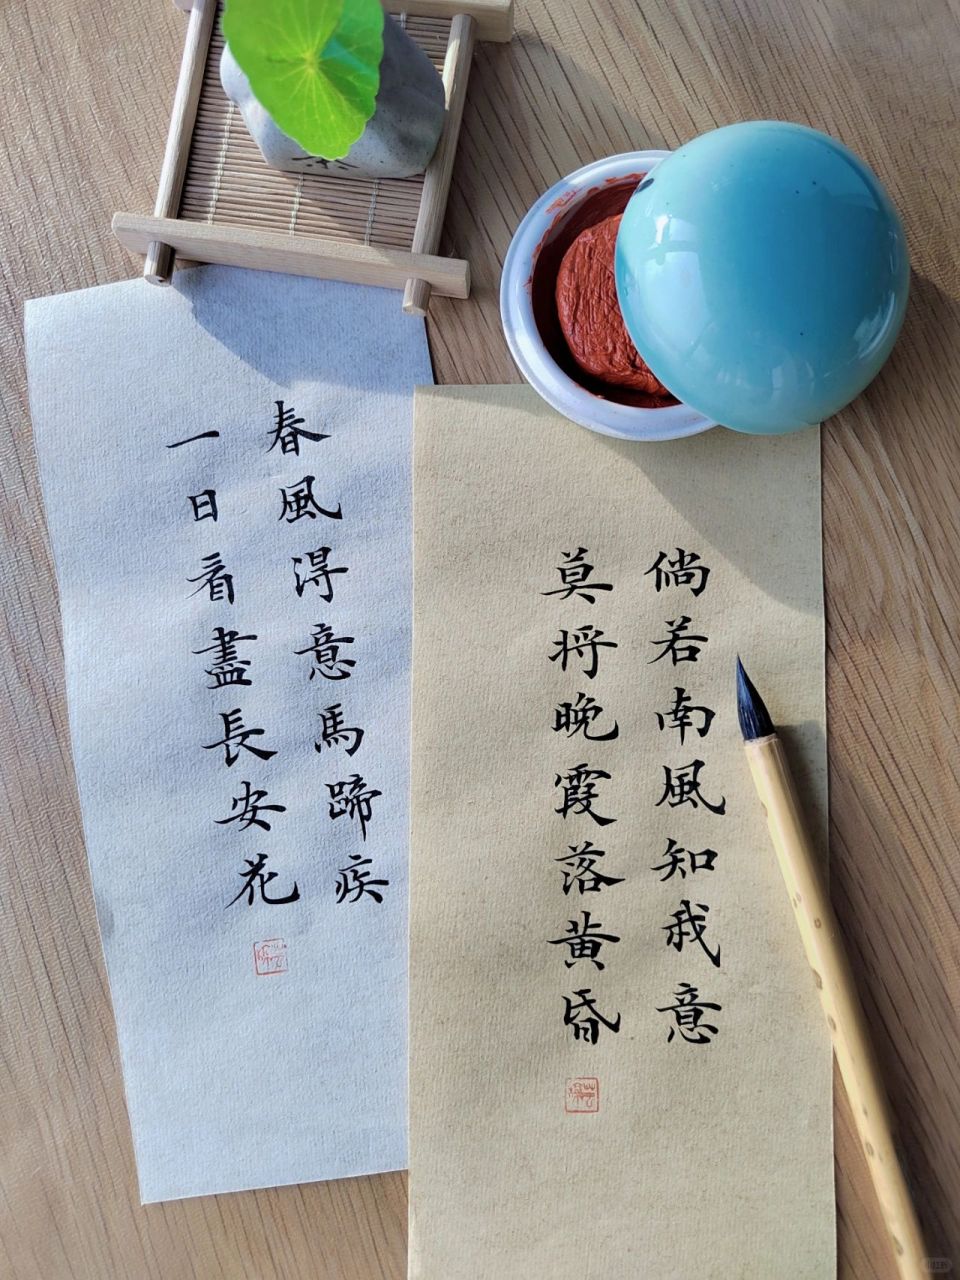 春風得意馬蹄疾
一日看盡長安花
倘若南風知我意
莫将晚霞落黄昏